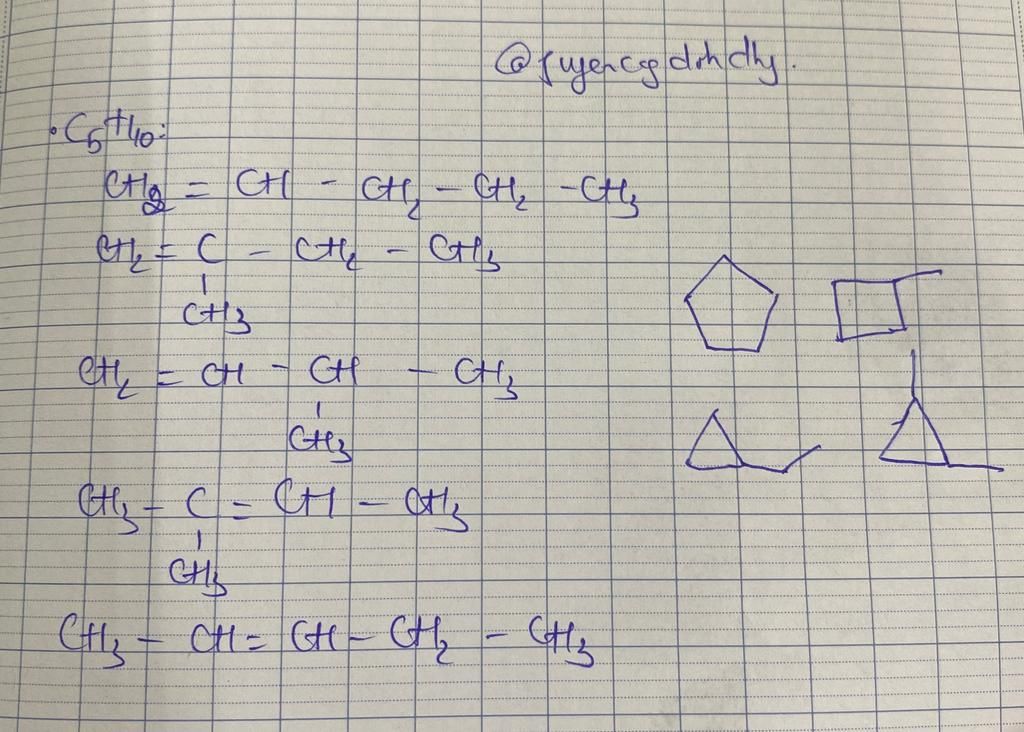 • C5H10:
CH2 = CH - CH2 - CH2 - CH3
CH2 = C - CH2 - CH3
CH3
CH2 = CH - CH - CH3
CH3
CH3 - C = CH - CH3
CH3
CH3 - CH = CH - CH2 - CH3